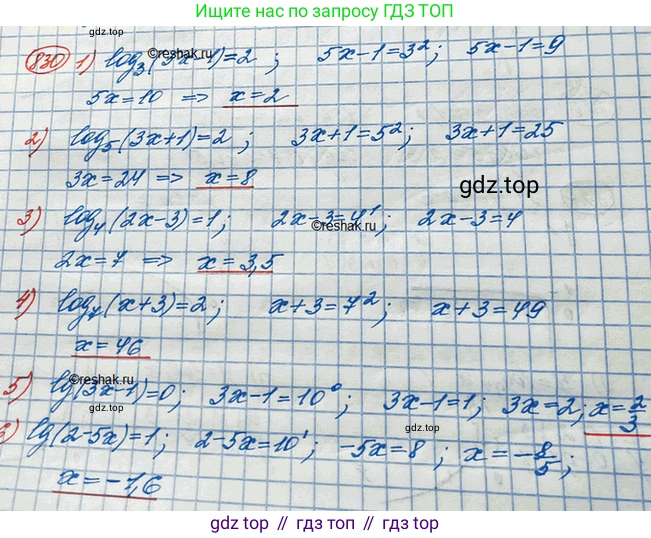 Ищите нас по запросу ГДЗ ТОП
gdz.top
830 1) log₃(5x-1)=2 ; 5x-1=3²; 5x-1=9
©reshak.ru
5x=10 => x=2
2) log₅(3x+1)=2 ; 3x+1=5²; 3x+1=25
3x=24 => x=8
gdz.top
3) log₄(2x-3)=1; 2x-3=4¹; 2x-3=4
©reshak.ru
2x=7 => x=3,5
4) log₇(x+3)=2; x+3=7²; x+3=49
x=46
©reshak.ru
5) lg(3x-1)=0; 3x-1=10⁰; 3x-1=1; 3x=2; x=2/3
gdz.top
6) lg(2-5x)=1; 2-5x=10¹; -5x=8; x=-8/5;
gdz.top
x=-1,6
gdz.top // гдз.топ // gdz.top // гдз.топ